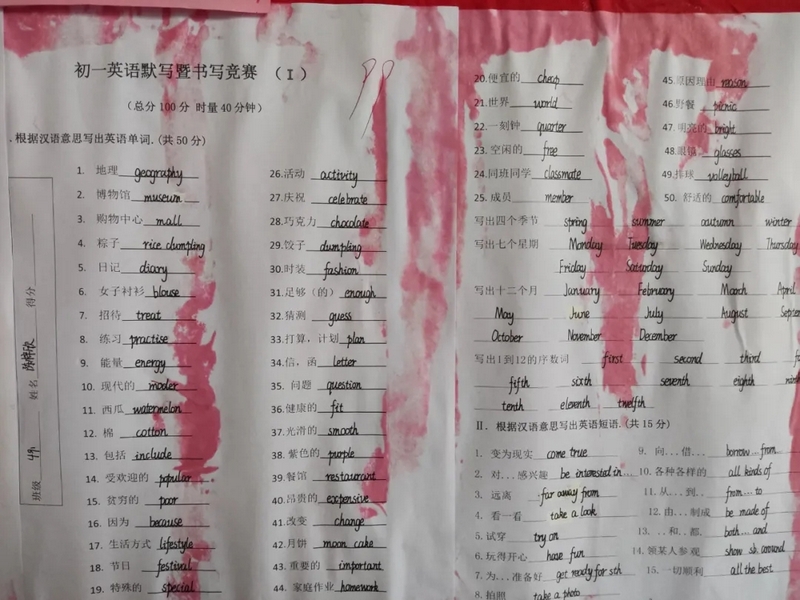 初一英语默写暨书写竞赛 （I）
（总分100分 时量40分钟）
.根据汉语意思写出英语单词.(共50分)
1. 地理 geography
2. 博物馆 museum
3. 购物中心 mall
4. 粽子 rice dumpling
5. 日记 diary
6. 女子衬衫 blouse
7. 招待 treat
8. 练习 practise
9. 能量 energy
10. 现代的 moder
11. 西瓜 watermelon
12. 棉 cotton
13. 包括 include
14. 受欢迎的 popular
15. 贫穷的 poor
16. 因为 because
17. 生活方式 lifestyle
18. 节日 festival
19. 特殊的 special
26.活动 activity
27.庆祝 celebrate
28.巧克力 chocolate
29.饺子 dumpling
30.时装 fashion
31.足够（的） enough
32.猜测 guess
33.打算，计划 plan
34.信，函 letter
35. 问题 question
36.健康的 fit
37.光滑的 smooth
38. 紫色的 purple
39.餐馆 restaurant
40.昂贵的 expensive
41.改变 change
42.月饼 moon cake
43.重要的 important
44. 家庭作业 homework
得分
姓名
班级
99
20.便宜的 cheap
21.世界 world
22.一刻钟 quarter
23.空闲的 free
24.同班同学 classmate
25.成员 member
45.原因理由 reason
46.野餐 picnic
47.明亮的 bright
48.眼镜 glasses
49.排球 volleyball
50. 舒适的 comfortable
写出四个季节 spring summer autumn winter
写出七个星期 Monday Tuesday Wednesday Thursday
Friday Saturday Sunday
写出十二个月 January February March April
May June July August Septe
October November December
写出1到12的序数词 first second third fo
fifth sixth seventh eighth ninth
tenth eleventh twelfth
II．根据汉语意思写出英语短语.(共15分)
1. 变为现实 come true
2. 对...感兴趣 be interested in...
3. 远离 far away from
4. 看一看 take a look
5.试穿 try on
6.玩得开心 have fun
7.为...准备好 get ready for sth
8.拍照 take a photo
9. 向...借... borrow...from
10.各种各样的 all kinds of
11.从...到.. from...to
12.由...制成 be made of
13. ..和..都. both...and
14.领某人参观 show sb. around
15.一切顺利 all the best